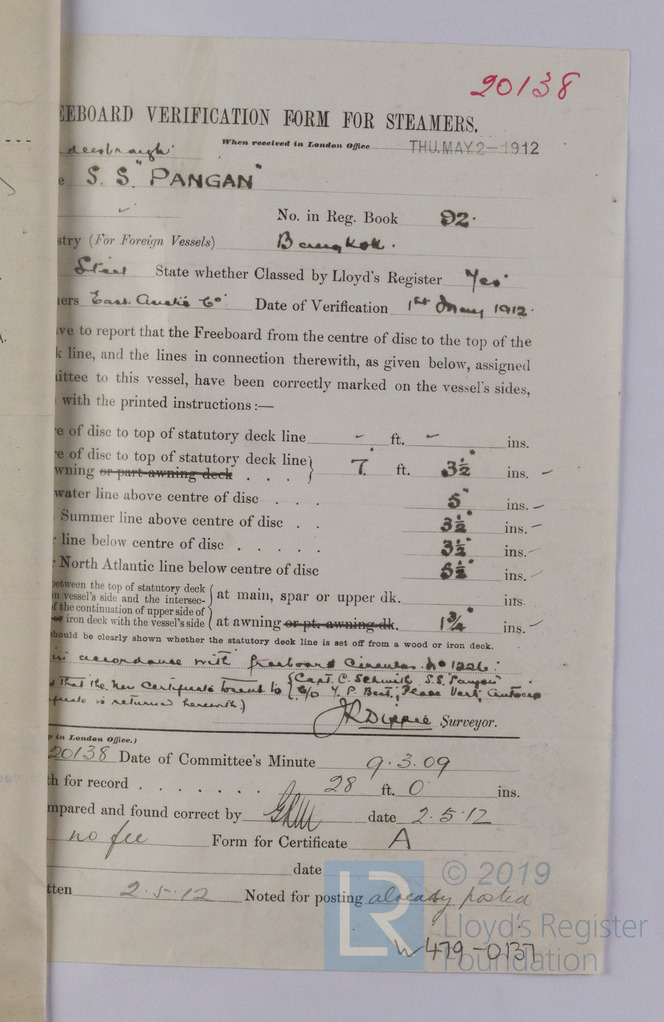 20138
EEBOARD VERIFICATION FORM FOR STEAMERS.
When received in London Office THU. MAY. 2 - 1912
S.S. "PANGAN"
No. in Reg. Book 92.
stry (For Foreign Vessels) Bangkok.
Steel State whether Classed by Lloyd's Register Yes
ers East Asiatic Co. Date of Verification 1st May 1912.
ve to report that the Freeboard from the centre of disc to the top of the
k line, and the lines in connection therewith, as given below, assigned
ittee to this vessel, have been correctly marked on the vessel's sides,
with the printed instructions:—
e of disc to top of statutory deck line - ft. - ins.
e of disc to top of statutory deck line
wning or part awning deck . . . 7 ft. 3½" ins.
water line above centre of disc . . . 5" ins.
Summer line above centre of disc . . 3½" ins.
line below centre of disc . . . . . 3½" ins.
North Atlantic line below centre of disc 5½" ins.
between the top of statutory deck
n vessel's side and the intersec- at main, spar or upper dk. ins.
f the continuation of upper side of
iron deck with the vessel's side at awning or pt. awning dk. 1¾" ins.
hould be clearly shown whether the statutory deck line is set off from a wood or iron deck.
in accordance with freeboard Circular No 1226.
That the new Certificate be sent to Capt. C. Schmith S.S. "Pangan"
c/o Y. P. Best, Place Verte, Antwerp
ficate is returned herewith)
JR Dippie Surveyor.
in London Office.)
20138 Date of Committee's Minute 9.3.09
h for record . . . . . . . 28 ft. 0 ins.
mpared and found correct by date 2.5.12
no fee Form for Certificate A
date
tten 2.5.12 Noted for posting already posted
© 2019
LR Lloyd's Register
Foundation
W479-0137